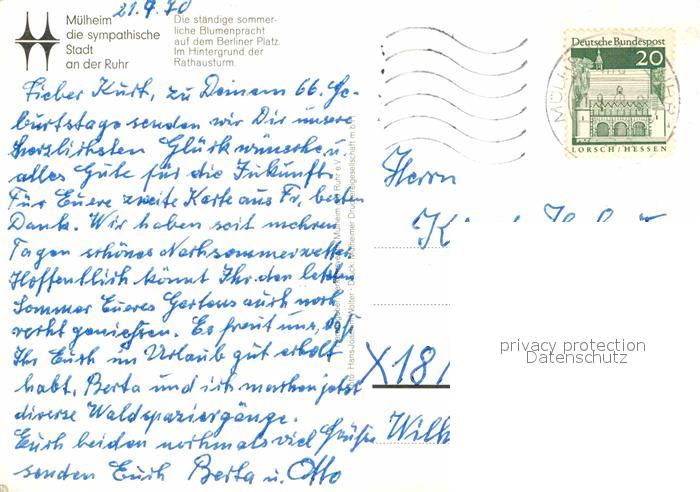 21.9.70
Mülheim
die sympathische
Stadt
an der Ruhr
Die ständige sommer-
liche Blumenpracht
auf dem Berliner Platz.
Im Hintergrund der
Rathausturm.
Lieber Kurt, zu Deinem 66. Ge-
burtstage senden wir Dir unsere
herzlichsten Glückwünsche u.
alles Gute für die Zukunft.
Für Euere zweite Karte aus Fr. besten
Dank. Wir haben seit mehren
Tagen schönes Nachsommerwetter
Hoffentlich könnt Ihr den letzten
Sommer Eueres Gartens auch noch
recht geniessen. Es freut uns, daß
Ihr Euch im Urlaub gut erholt
habt. Berta und ich machen jetzt
diverse Waldspaziergänge.
Euch beiden nochmals viel Grüße
senden Euch Berta u. Otto
Deutsche Bundespost
20
LORSCH/HESSEN
Herrn
X18
Wilh
privacy protection
Datenschutz